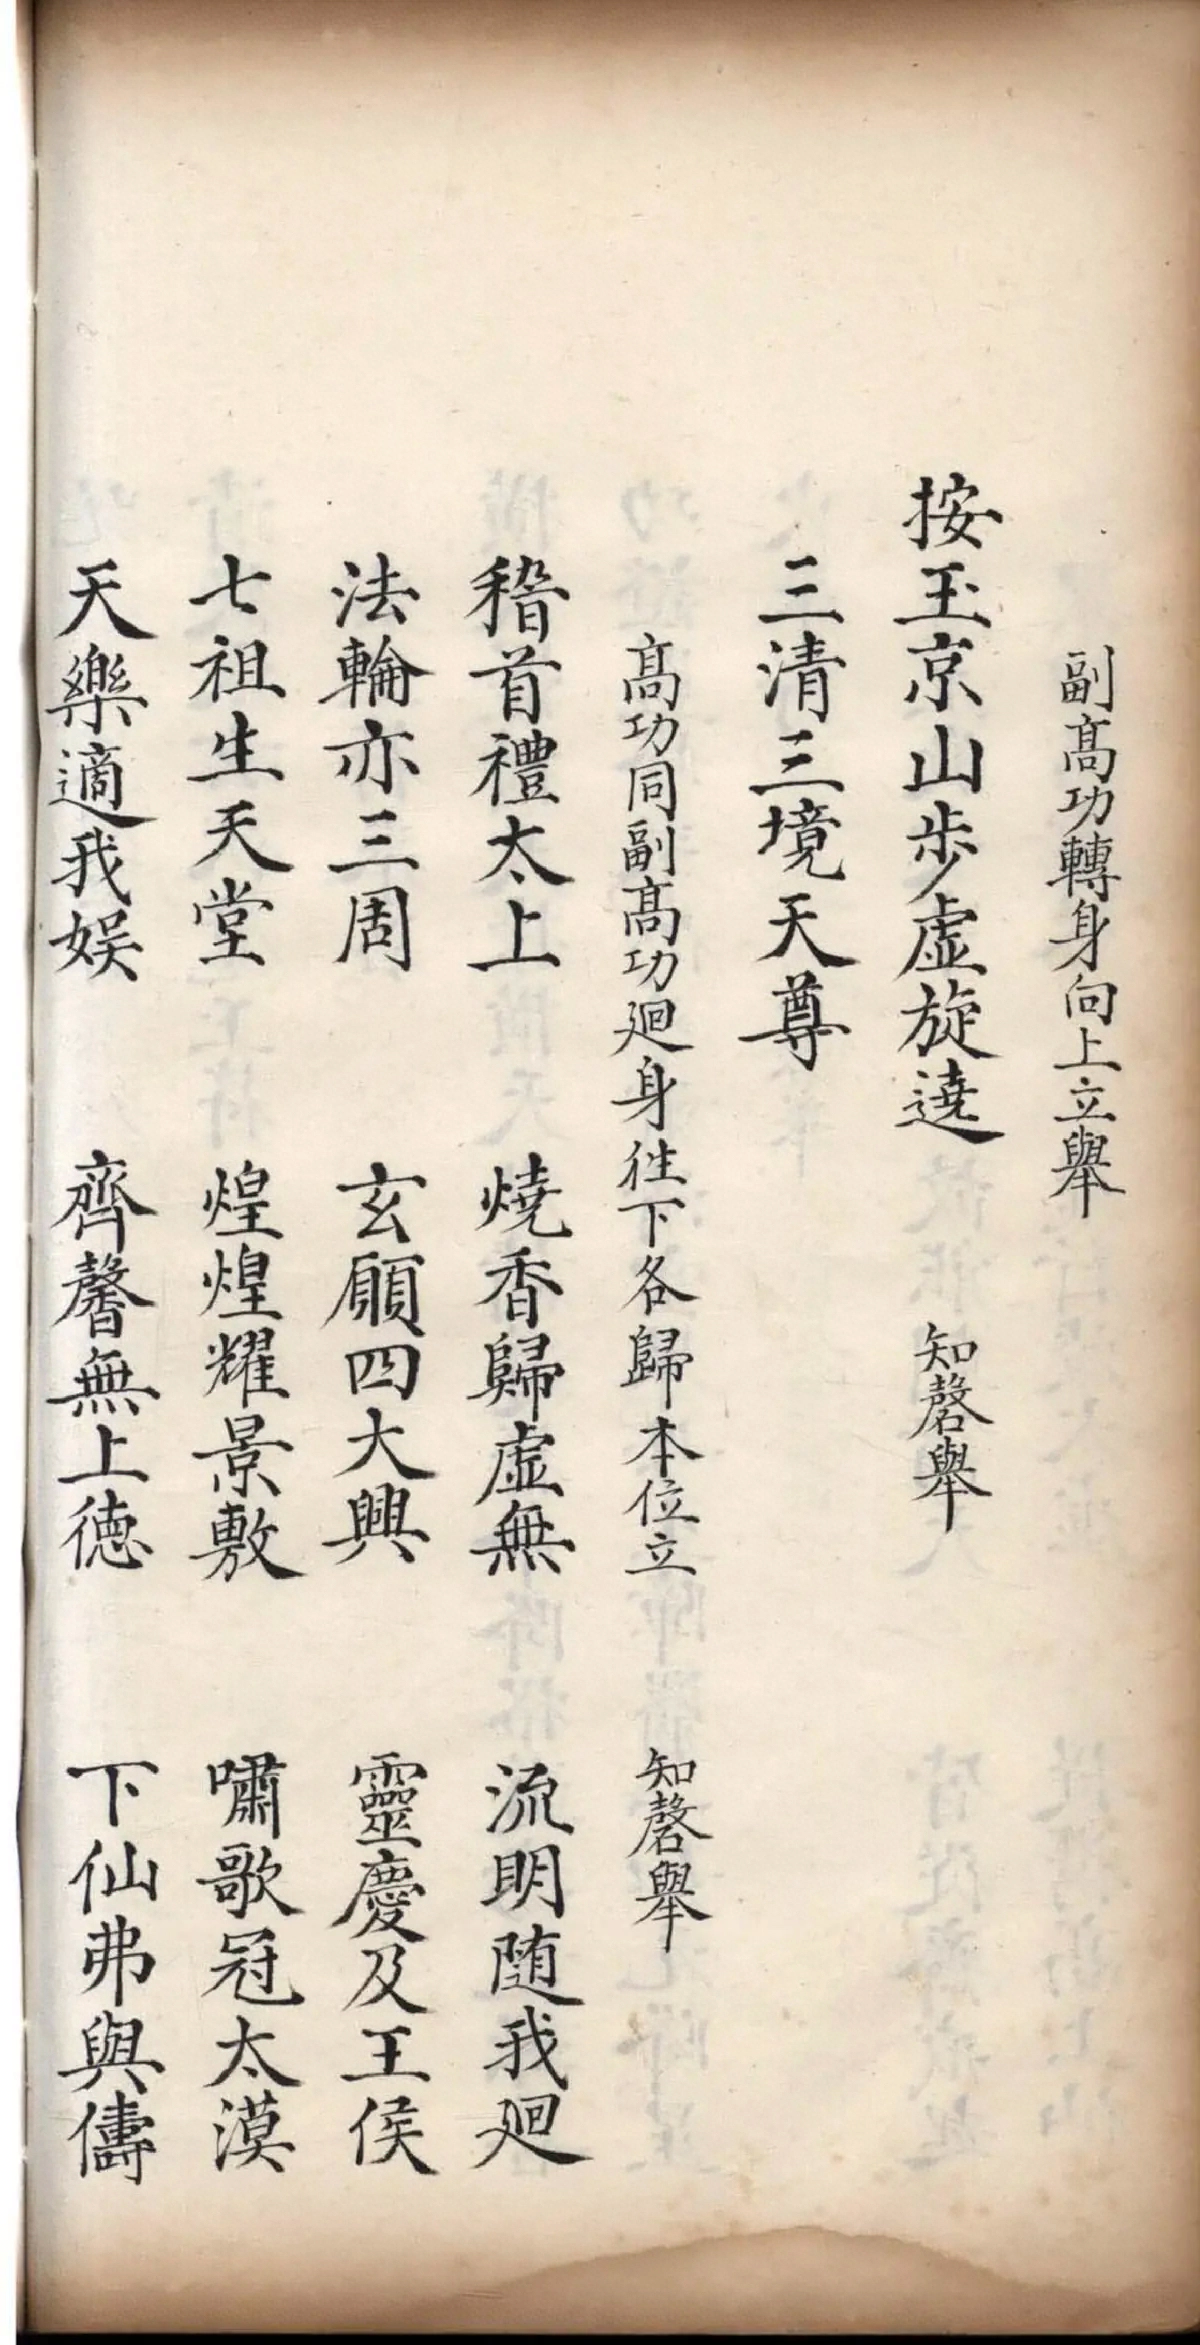 副髙功轉身向上立舉
按玉京山步虛旋遶　知磬舉
三清三境天尊
髙功同副髙功廻身往下各歸本位立　知磬舉
稽首禮太上　燒香歸虛無　流明隨我廻
法輪亦三周　玄願四大興　靈慶及王侯
七祖生天堂　煌煌耀景敷　嘯歌冠太漠
天樂適我娛　齊馨無上德　下仙弗與儔